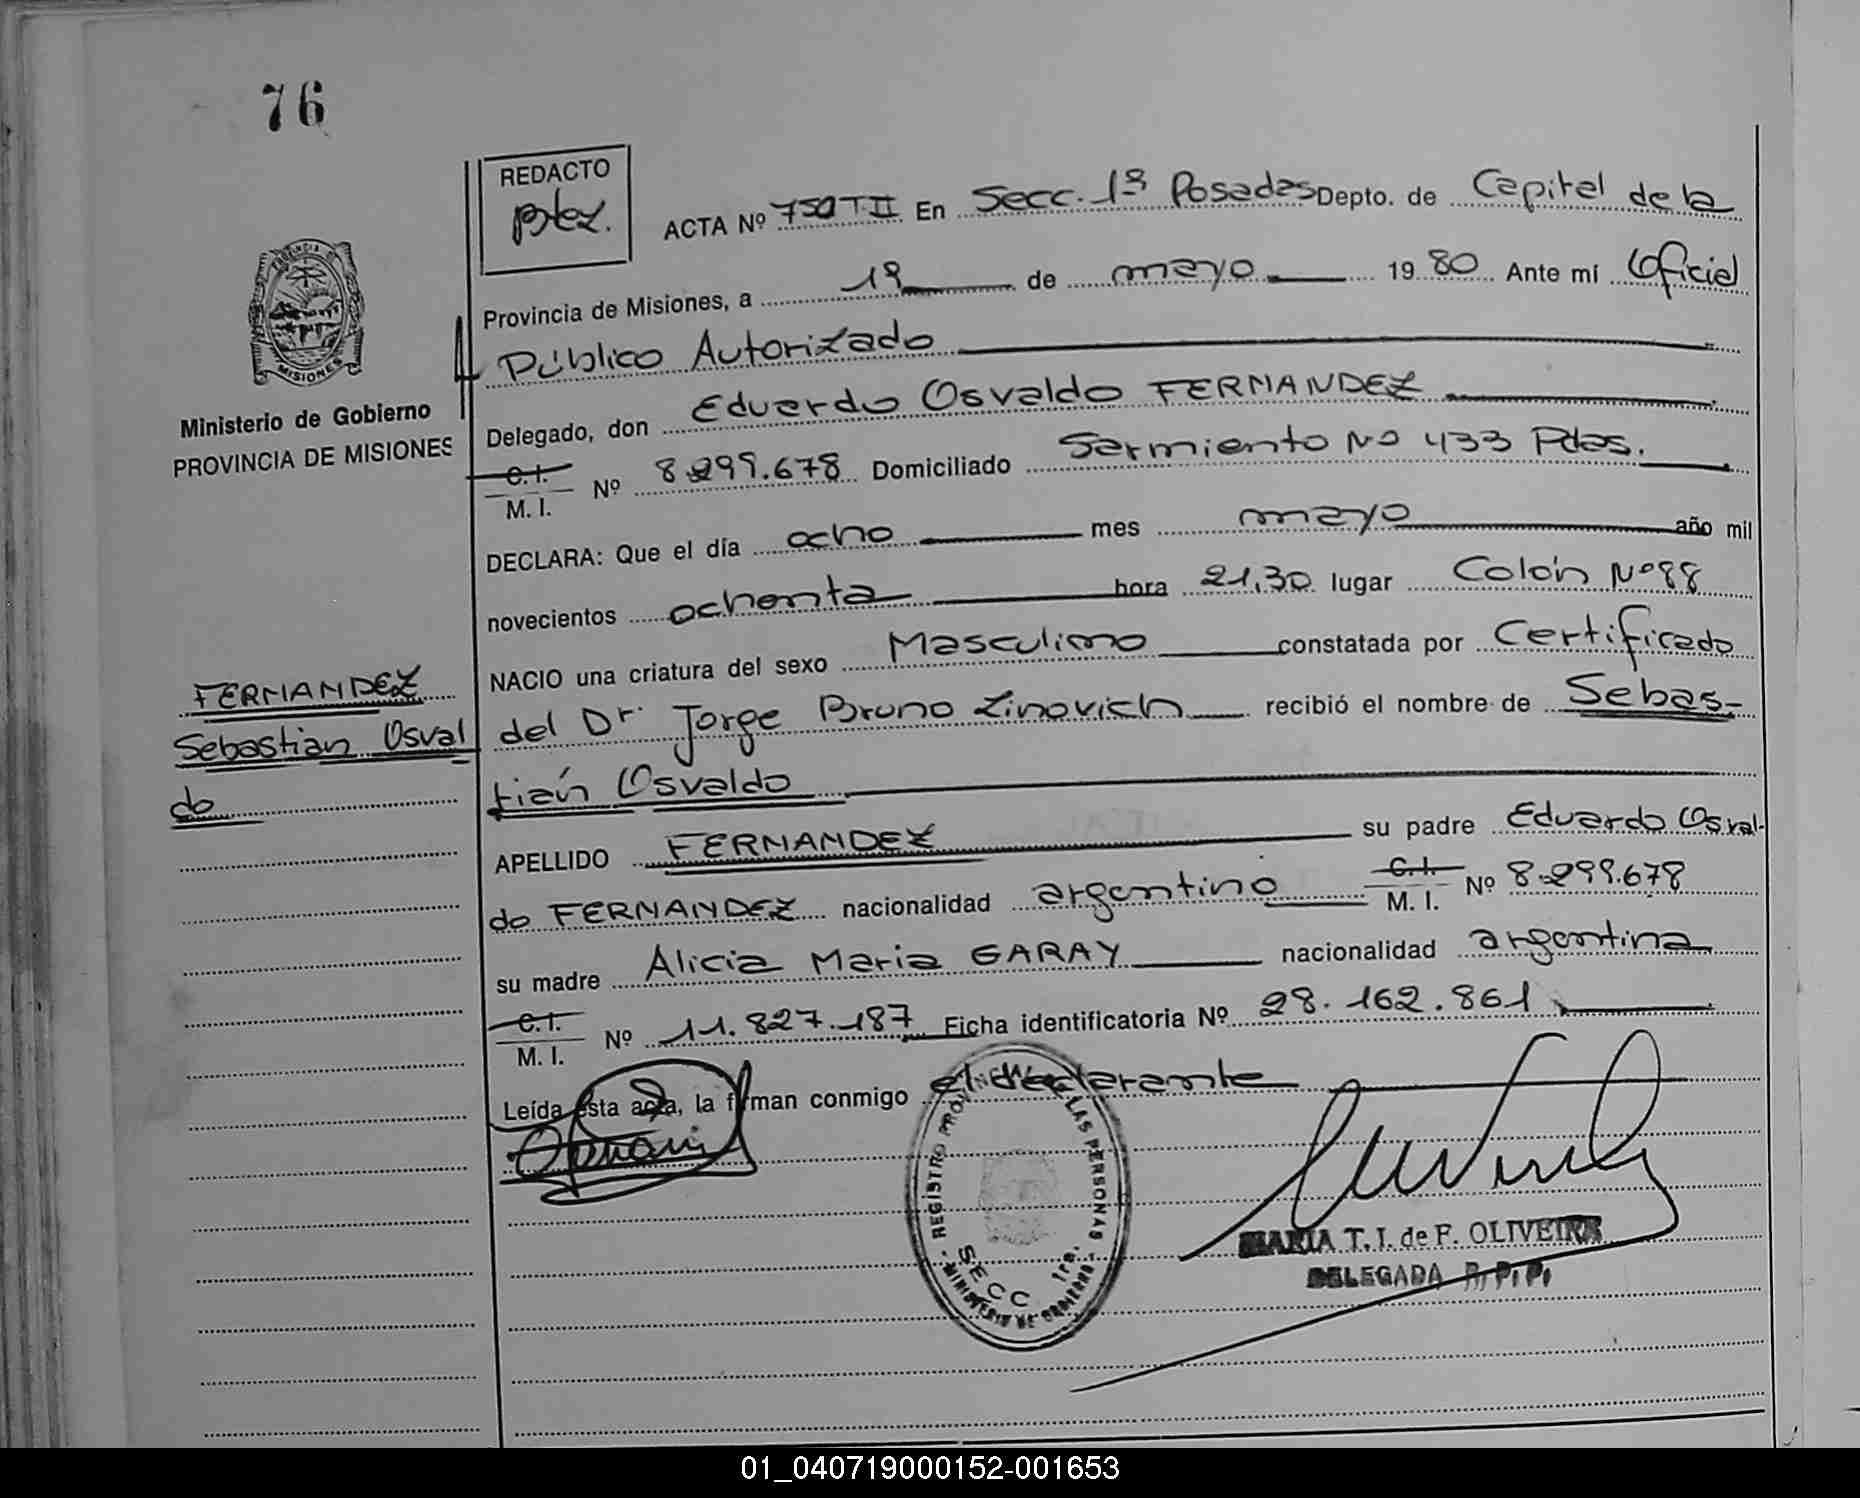 76
REDACTO
ACTA Nº 750 T.II En Secc. 1ª Posadas Depto. de Capital de la
Provincia de Misiones, a 19 de mayo 1980 Ante mí Oficial
Público Autorizado
MISIONES
Ministerio de Gobierno
PROVINCIA DE MISIONES
Delegado, don Eduardo Osvaldo FERNANDEZ
C.I.
M. I. Nº 8.299.678 Domiciliado Sarmiento Nº 433 Pdas.
DECLARA: Que el día ocho mes mayo año mil
novecientos ochenta hora 21,30 lugar Colón Nº 88
NACIO una criatura del sexo Masculino constatada por Certificado
FERNANDEZ
Sebastian Osval
do
del Dr. Jorge Bruno Zinovich recibió el nombre de Sebas-
tián Osvaldo
APELLIDO FERNANDEZ su padre Eduardo Osval-
do FERNANDEZ nacionalidad argentino C.I. M. I. Nº 8.299.678
su madre Alicia Maria GARAY nacionalidad argentina
C.I.
M. I. Nº 11.827.187 Ficha identificatoria Nº 28.162.861
Leída esta acta, la firman conmigo el declarante
REGISTRO LAS PERSONAS
MINISTERIO DE GOBIERNO
SECC 1ra.
MARIA T. I. de F. OLIVEIRA
DELEGADA R. P. P.
01_040719000152-001653